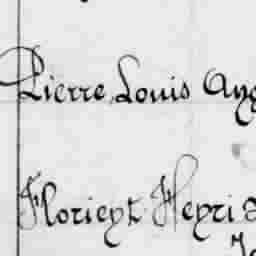 Pierre, Louis Ang
Florient Henri